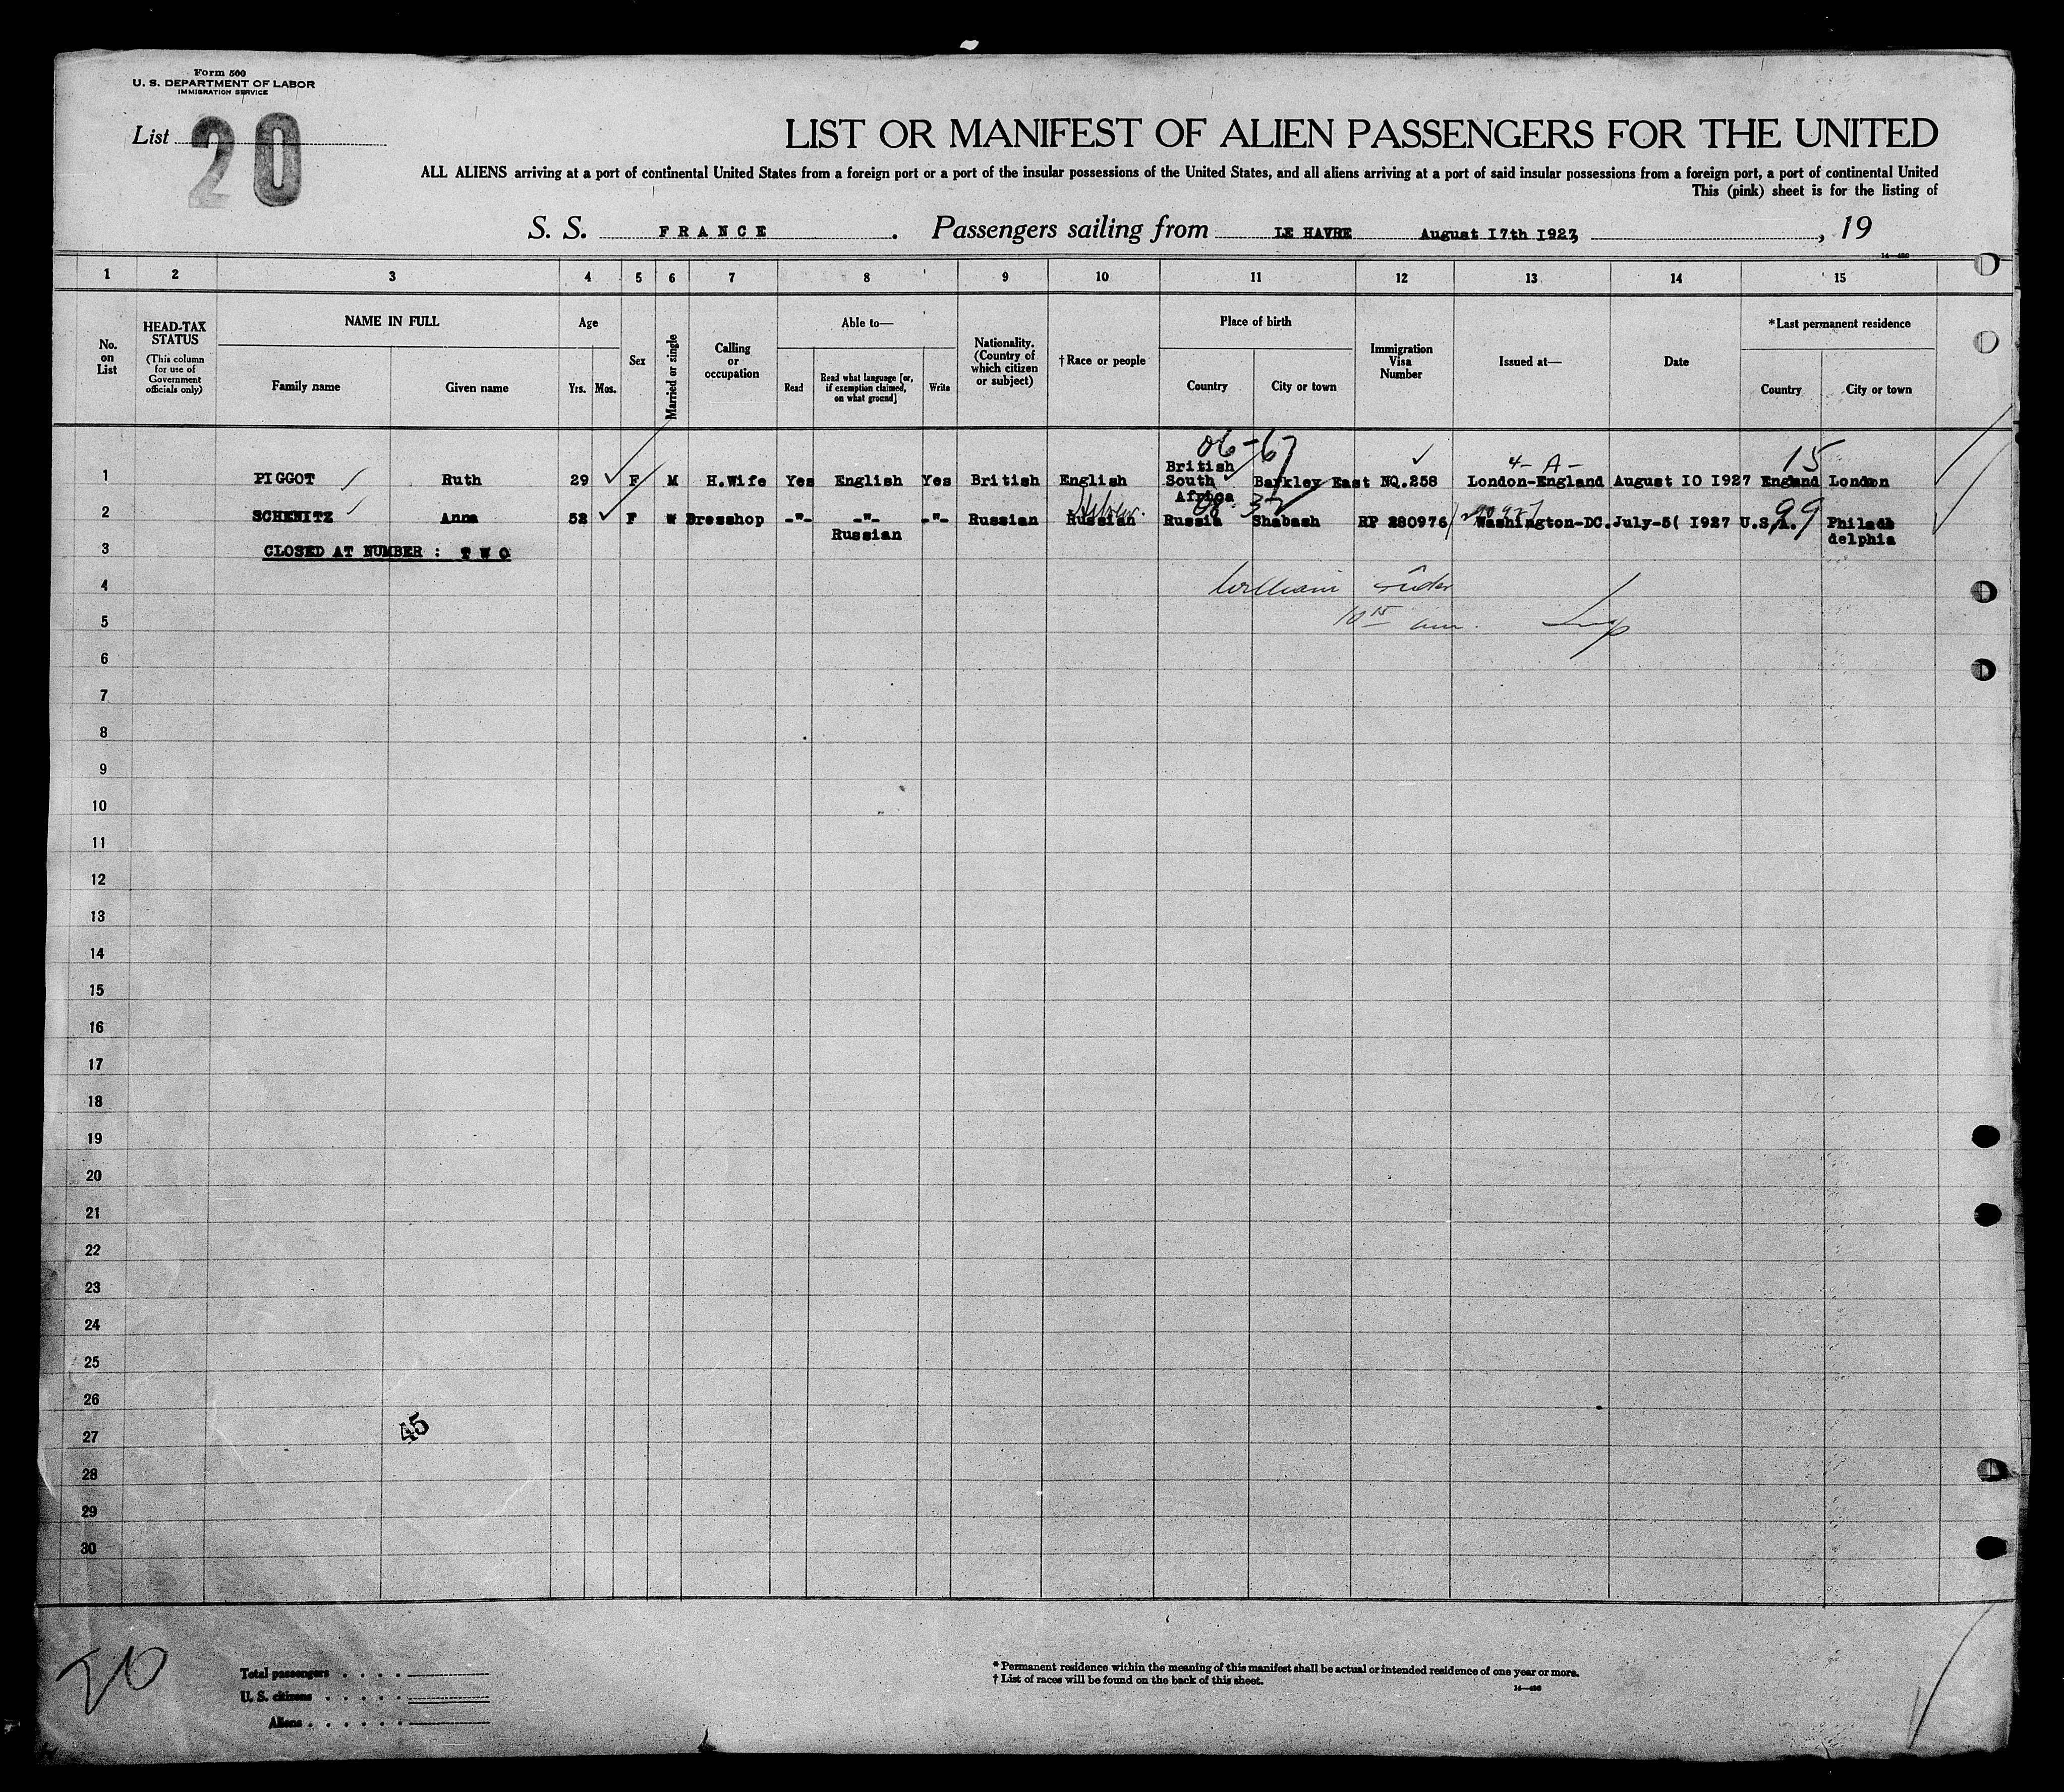 Form 500
U. S. DEPARTMENT OF LABOR
IMMIGRATION SERVICE
List 20
LIST OR MANIFEST OF ALIEN PASSENGERS FOR THE UNITED
ALL ALIENS arriving at a port of continental United States from a foreign port or a port of the insular possessions of the United States, and all aliens arriving at a port of said insular possessions from a foreign port, a port of continental United
This (pink) sheet is for the listing of
S. S. FRANCE . Passengers sailing from LE HAVRE August 17th 1927, , 19
14—430
1 2 3 4 5 6 7 8 9 10 11 12 13 14 15
No. on List
HEAD-TAX STATUS
(This column for use of Government officials only)
NAME IN FULL
Family name
Given name
Age
Yrs. Mos.
Sex
Married or single
Calling or occupation
Able to—
Read
Read what language [or, if exemption claimed, on what ground]
Write
Nationality. (Country of which citizen or subject)
†Race or people
Place of birth
Country
City or town
Immigration Visa Number
Issued at—
Date
*Last permanent residence
Country
City or town
06-67
4- A-
15
1 PIGGOT Ruth 29 F M H.Wife Yes English Yes British English British South Africa Barkley East NQ.258 London-England August 10 1927 England London
Hebrew
08-32
99
2 SCHENITZ Anna 52 F W Dresshop -"- -"- Russian -"- Russian Russian Russia Shabash RP 280976/ Washington-DC. July-5( 1927 U.S.A. Philadelphia
3 CLOSED AT NUMBER : T W O
4 William
5 10 15 am.
6
7
8
9
10
11
12
13
14
15
16
17
18
19
20
21
22
23
24
25
26
27 45
28
29
30
20
Total passengers . . . .
U. S. citizens . . . . .
Aliens . . . . . .
* Permanent residence within the meaning of this manifest shall be actual or intended residence of one year or more.
† List of races will be found on the back of this sheet.
14—430